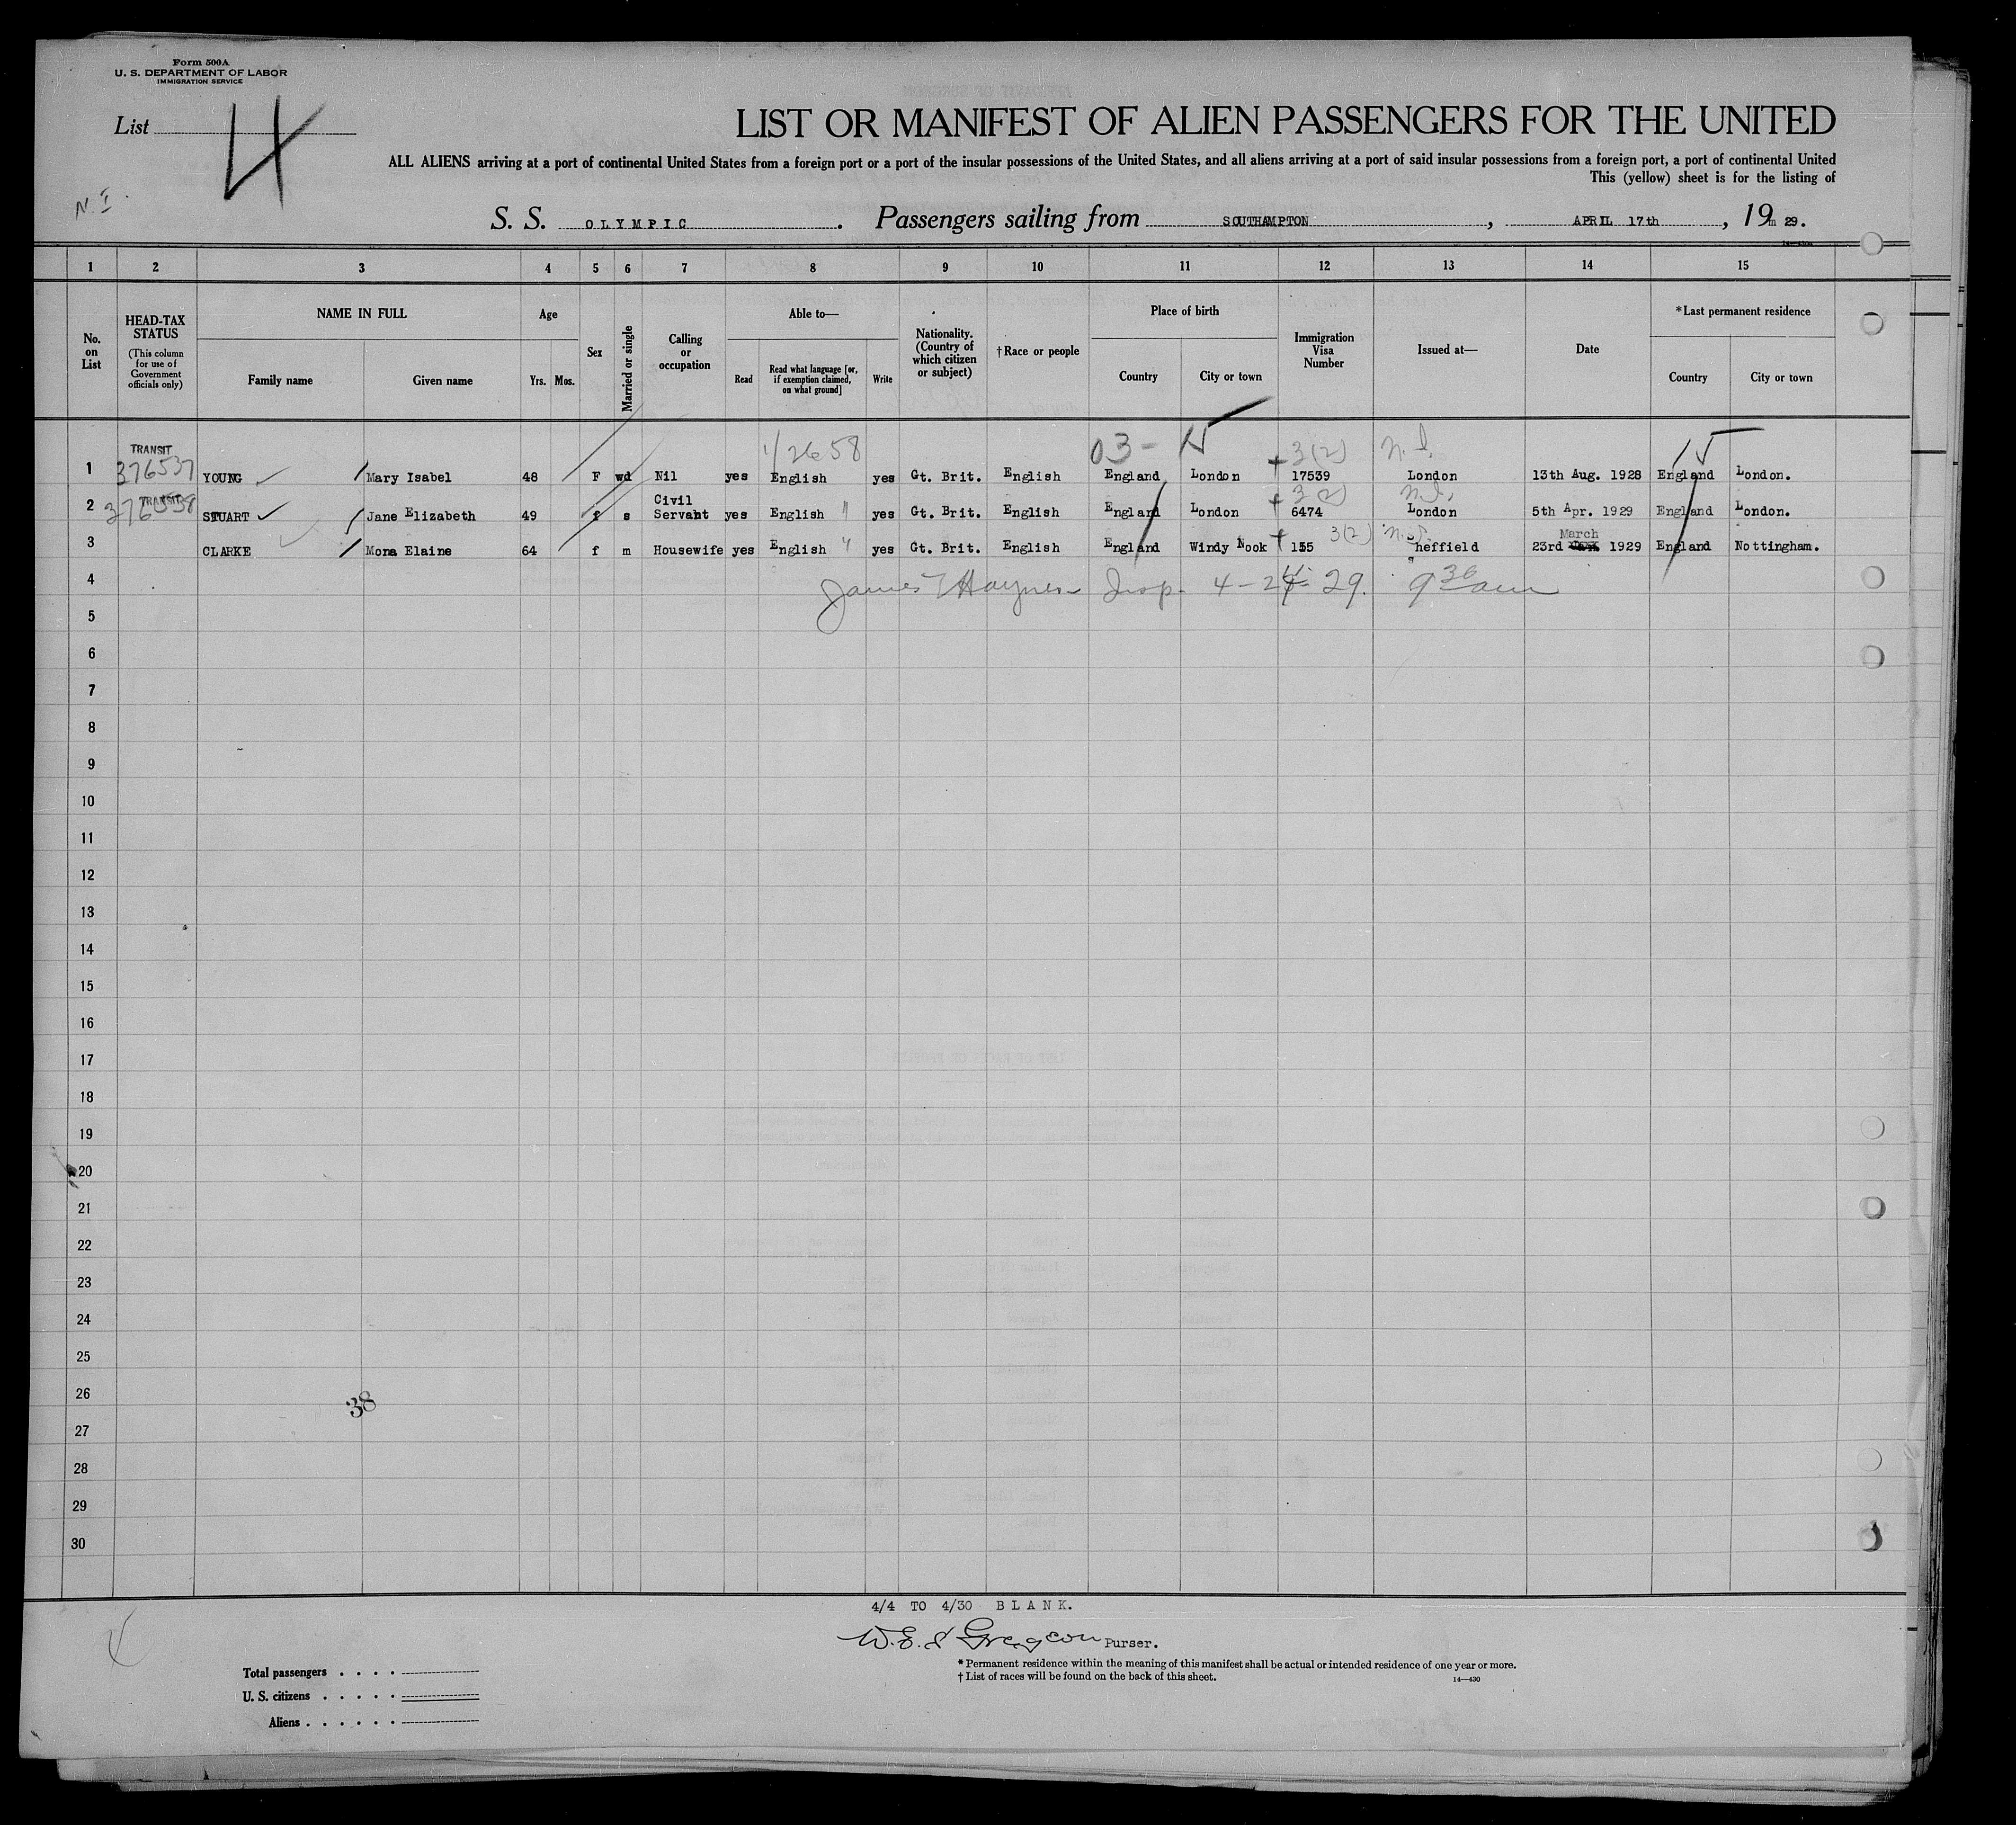 Form 500A
U. S. DEPARTMENT OF LABOR
IMMIGRATION SERVICE
List 4
N.I.
LIST OR MANIFEST OF ALIEN PASSENGERS FOR THE UNITED
ALL ALIENS arriving at a port of continental United States from a foreign port or a port of the insular possessions of the United States, and all aliens arriving at a port of said insular possessions from a foreign port, a port of continental United
This (yellow) sheet is for the listing of
S. S. OLYMPIC. Passengers sailing from SOUTHAMPTON, APRIL 17th, 19 29.
1 2 3 4 5 6 7 8 9 10 11 12 13 14 15
No. on List
HEAD-TAX STATUS
(This column for use of Government officials only)
NAME IN FULL
Family name Given name
Age
Yrs. Mos.
Sex
Married or single
Calling or occupation
Able to—
Read Read what language [or, if exemption claimed, on what ground] Write
Nationality. (Country of which citizen or subject)
† Race or people
Place of birth
Country City or town
Immigration Visa Number
Issued at—
Date
*Last permanent residence
Country City or town
TRANSIT 1/2658 03- 15 3(2) n.I. 15
1 376537 YOUNG Mary Isabel 48 F wd Nil yes English yes Gt. Brit. English England London 17539 London 13th Aug. 1928 England London.
2 TRANSIT 376538 STUART Jane Elizabeth 49 f s Civil Servant yes English " yes Gt. Brit. English England London 3(2) 6474 n.I. London 5th Apr. 1929 England London.
3 CLARKE Mona Elaine 64 f m Housewife yes English " yes Gt. Brit. English England Windy Nook 3(2) 155 n.I. Sheffield 23rd March 1929 England Nottingham.
4 James T Haynes Insp. 4-24-29. 9 30 am
5
6
7
8
9
10
11
12
13
14
15
16
17
18
19
20
21
22
23
24
25
26
38
27
28
29
30
4/4 TO 4/30 BLANK.
Purser.
* Permanent residence within the meaning of this manifest shall be actual or intended residence of one year or more.
† List of races will be found on the back of this sheet.
14—430
Total passengers . . . .
U. S. citizens . . . . .
Aliens . . . . . .